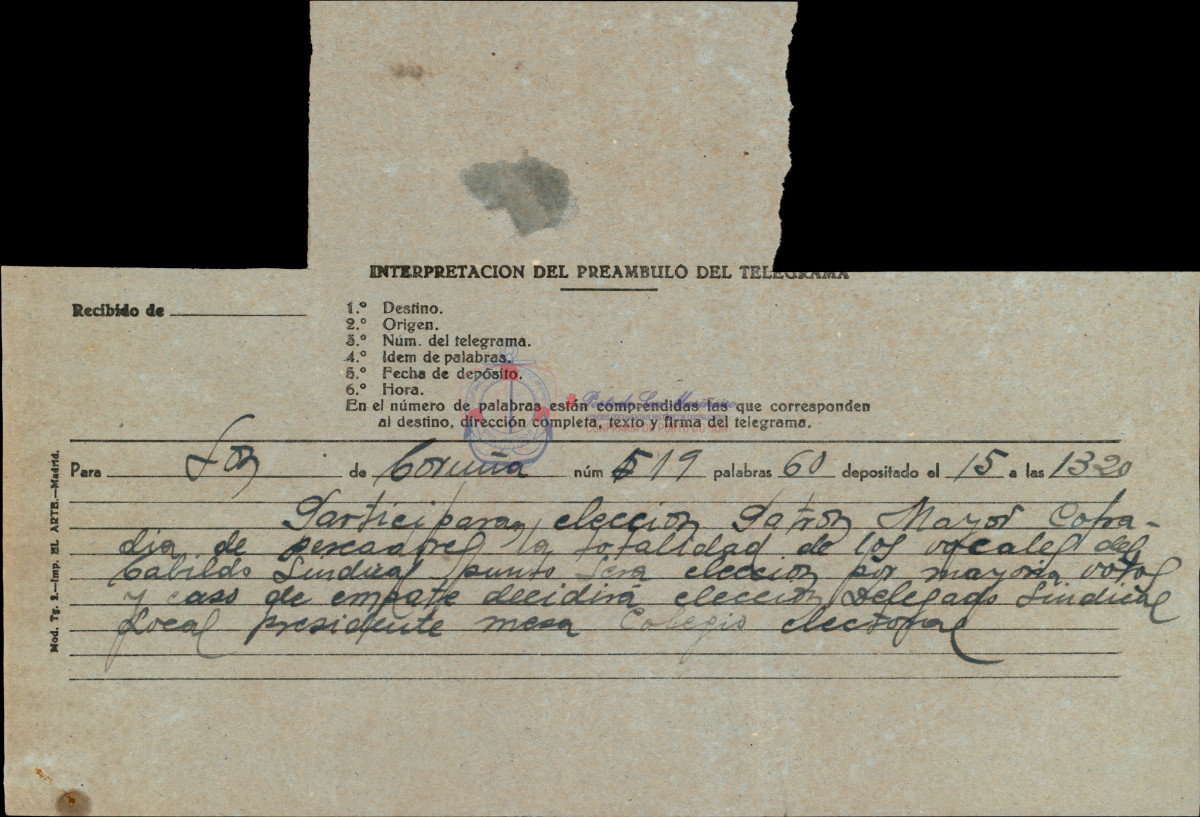 INTERPRETACION DEL PREAMBULO DEL TELEGRAMA
Recibido de
1.º Destino.
2.º Origen.
3.º Núm. del telegrama.
4.º Idem de palabras.
5.º Fecha de depósito.
6.º Hora.
En el número de palabras están comprendidas las que corresponden
al destino, dirección completa, texto y firma del telegrama.
COFRARIA DE PORTO DO SON
Para Son de Coruña núm 519 palabras 60 depositado el 15 a las 1320
Participaran eleccion Patron Mayor Cofra-
dia de pescadores la totalidad de los vocales del
Cabildo Sindical punto Sera eleccion por mayoria votos
y caso de empate decidirá eleccion Delegado Sindical
Local presidente mesa Colegio electoral
Mod. Tg. 2.—Imp. EL ARTE.—Madrid.